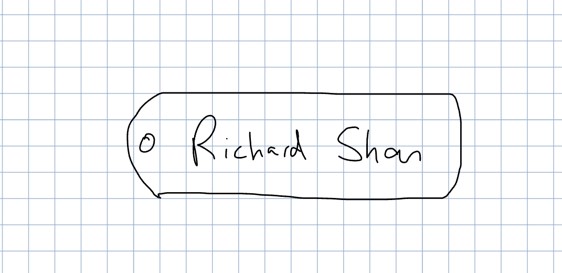 Richard Shan